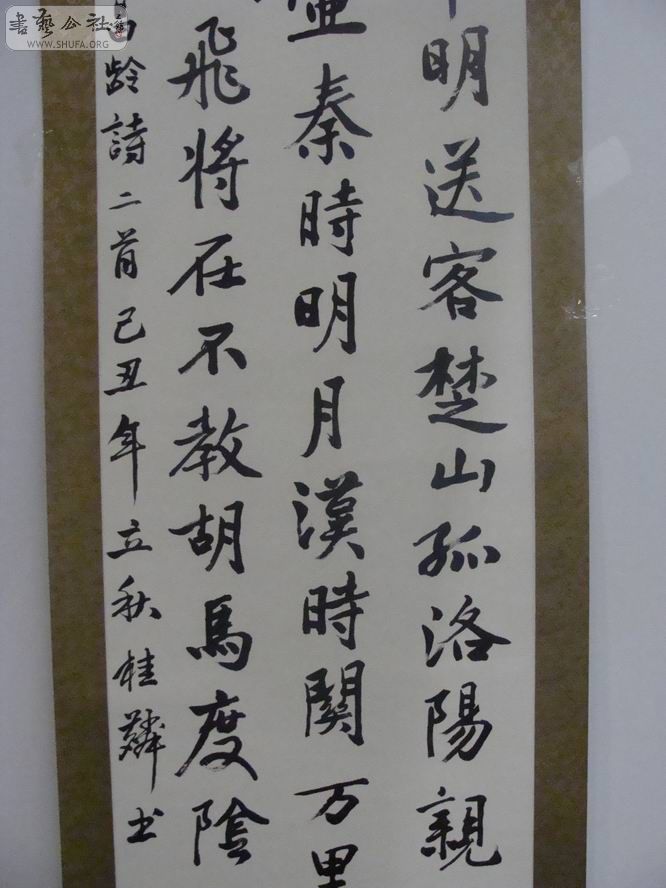 明送客楚山孤洛陽親
壺秦時明月漢時關万里
飛將在不教胡馬度陰
齡詩二首己丑年立秋桂麟书
書藝公社
WWW.SHUFA.ORG